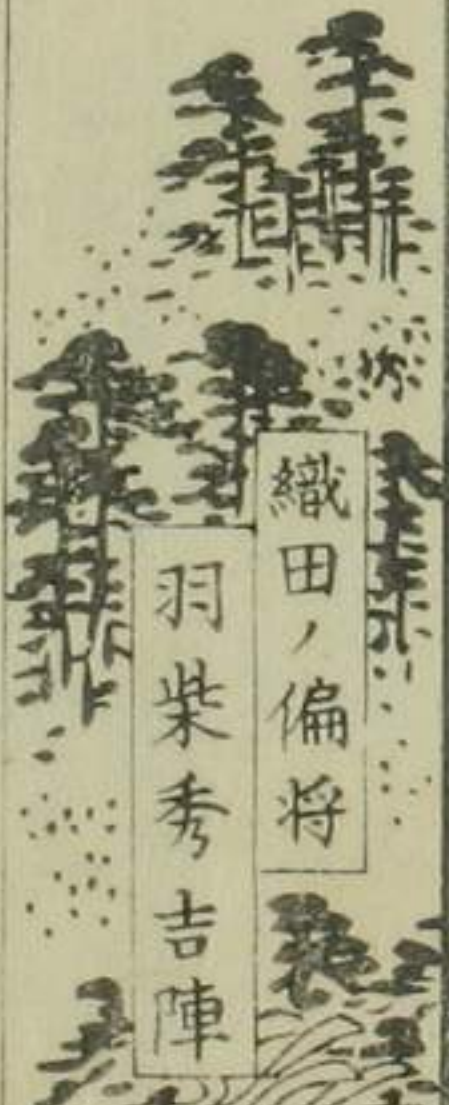 織田ノ偏将
羽柴秀吉陣